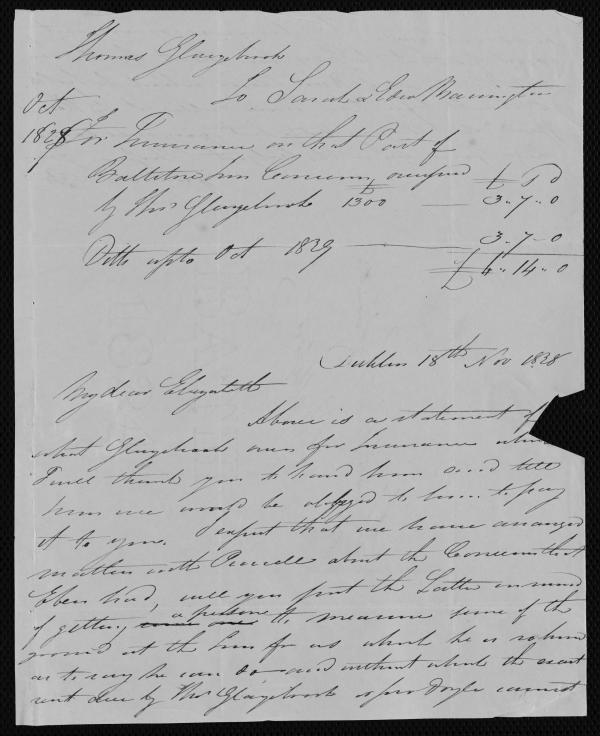 Thomas Glazebrook
To Sarah & Eben Barrington
Oct
1828 For Insurance on that Part of
Concern, occupied £ d
by Thos Glazebrook £1300 — 3-7-0
Ditto up to Oct 1829 — 3-7-0
£6-14-0
Dublin 18th Nov 1828
My dear Elizabeth
Above is a statement of
what Glazebrook owes for Insurance which
I will thank you to hand him and tell
him we would be obliged to him to pay
it to you. I expect that we have arranged
matters with Purcell about the Concern that
Eben had, will you put the Latter in mind
of getting a person to measure some of the
ground at the for us which he is so kind
as to say he can do and without which the exact
rent due by Thos Glazebrook Doyle cannot